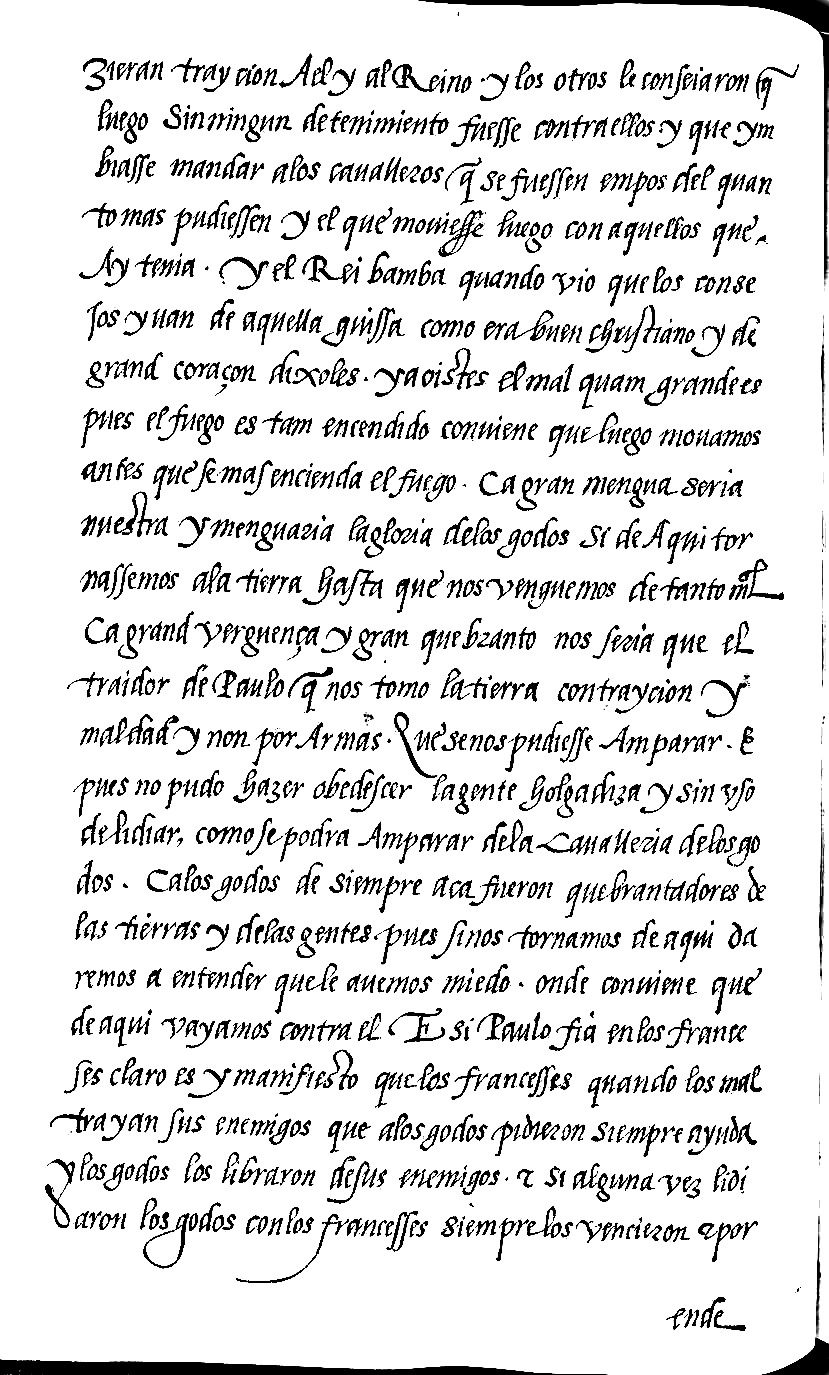 zieran traycion A el y al Reino · y los otros le conseiaron q̃
luego Sin ningun detenimiento fuesse contra ellos y que ym
biasse mandar a los cavalleros q̃ se fuessen empos del quan
to mas pudiessen y el que mouiesse luego con aquellos que
Ay tenia · Y el Rei bamba quando vio que los conse
jos yuan de aquella guissa como era buen christiano y de
grand coraçon dixoles · ya oistes el mal quam grande es
pues el fuego es tam encendido conuiene que luego mouamos
antes que se mas encienda el fuego · Ca gran mengua seria
nuestra y menguaria la gloria de los godos Si de Aqui tor
nassemos a la tierra hasta que nos venguemos de tanto mal
Ca grand verguença y gran quebranto nos seria que el
traidor de Paulo q̃ nos tomo la tierra con traycion y
maldad y non por Armas · Que se nos pudiesse Amparar · E
pues no pudo hazer obedescer la gente holgadiza y sin vso
de lidiar, como se podra Amparar de la Cavalleria de los go
dos · Ca los godos de siempre aca fueron quebrantadores de
las tierras y de las gentes · pues si nos tornamos de aqui da
remos a entender que le auemos miedo · onde conuiene que
de aqui vayamos contra el E si Paulo fia en los france
ses claro es y manifiesto que los francesses quando los mal
trayan sus enemigos que a los godos pidieron siempre ayuda
y los godos los libraron de sus enemigos · τ si alguna vez lidi
aron los godos con los francesses siempre los vencieron τ por
ende